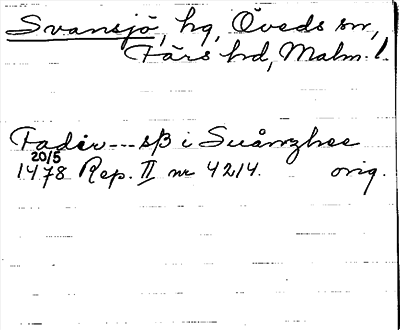 Svansjö, hg, Öveds sn,
Färs hd, Malm. l.
Fader --- sß i Suånzhee
20/5
1478 Rep. II nr 4214. orig.